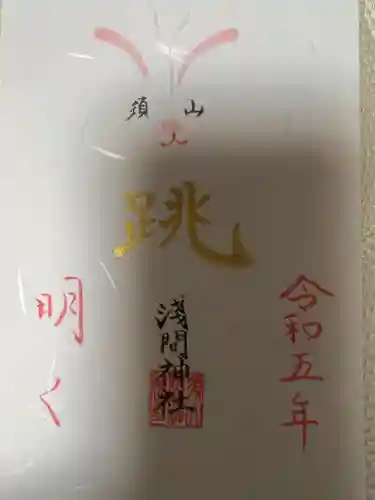 令和五年
須山
跳
浅間神社
明く